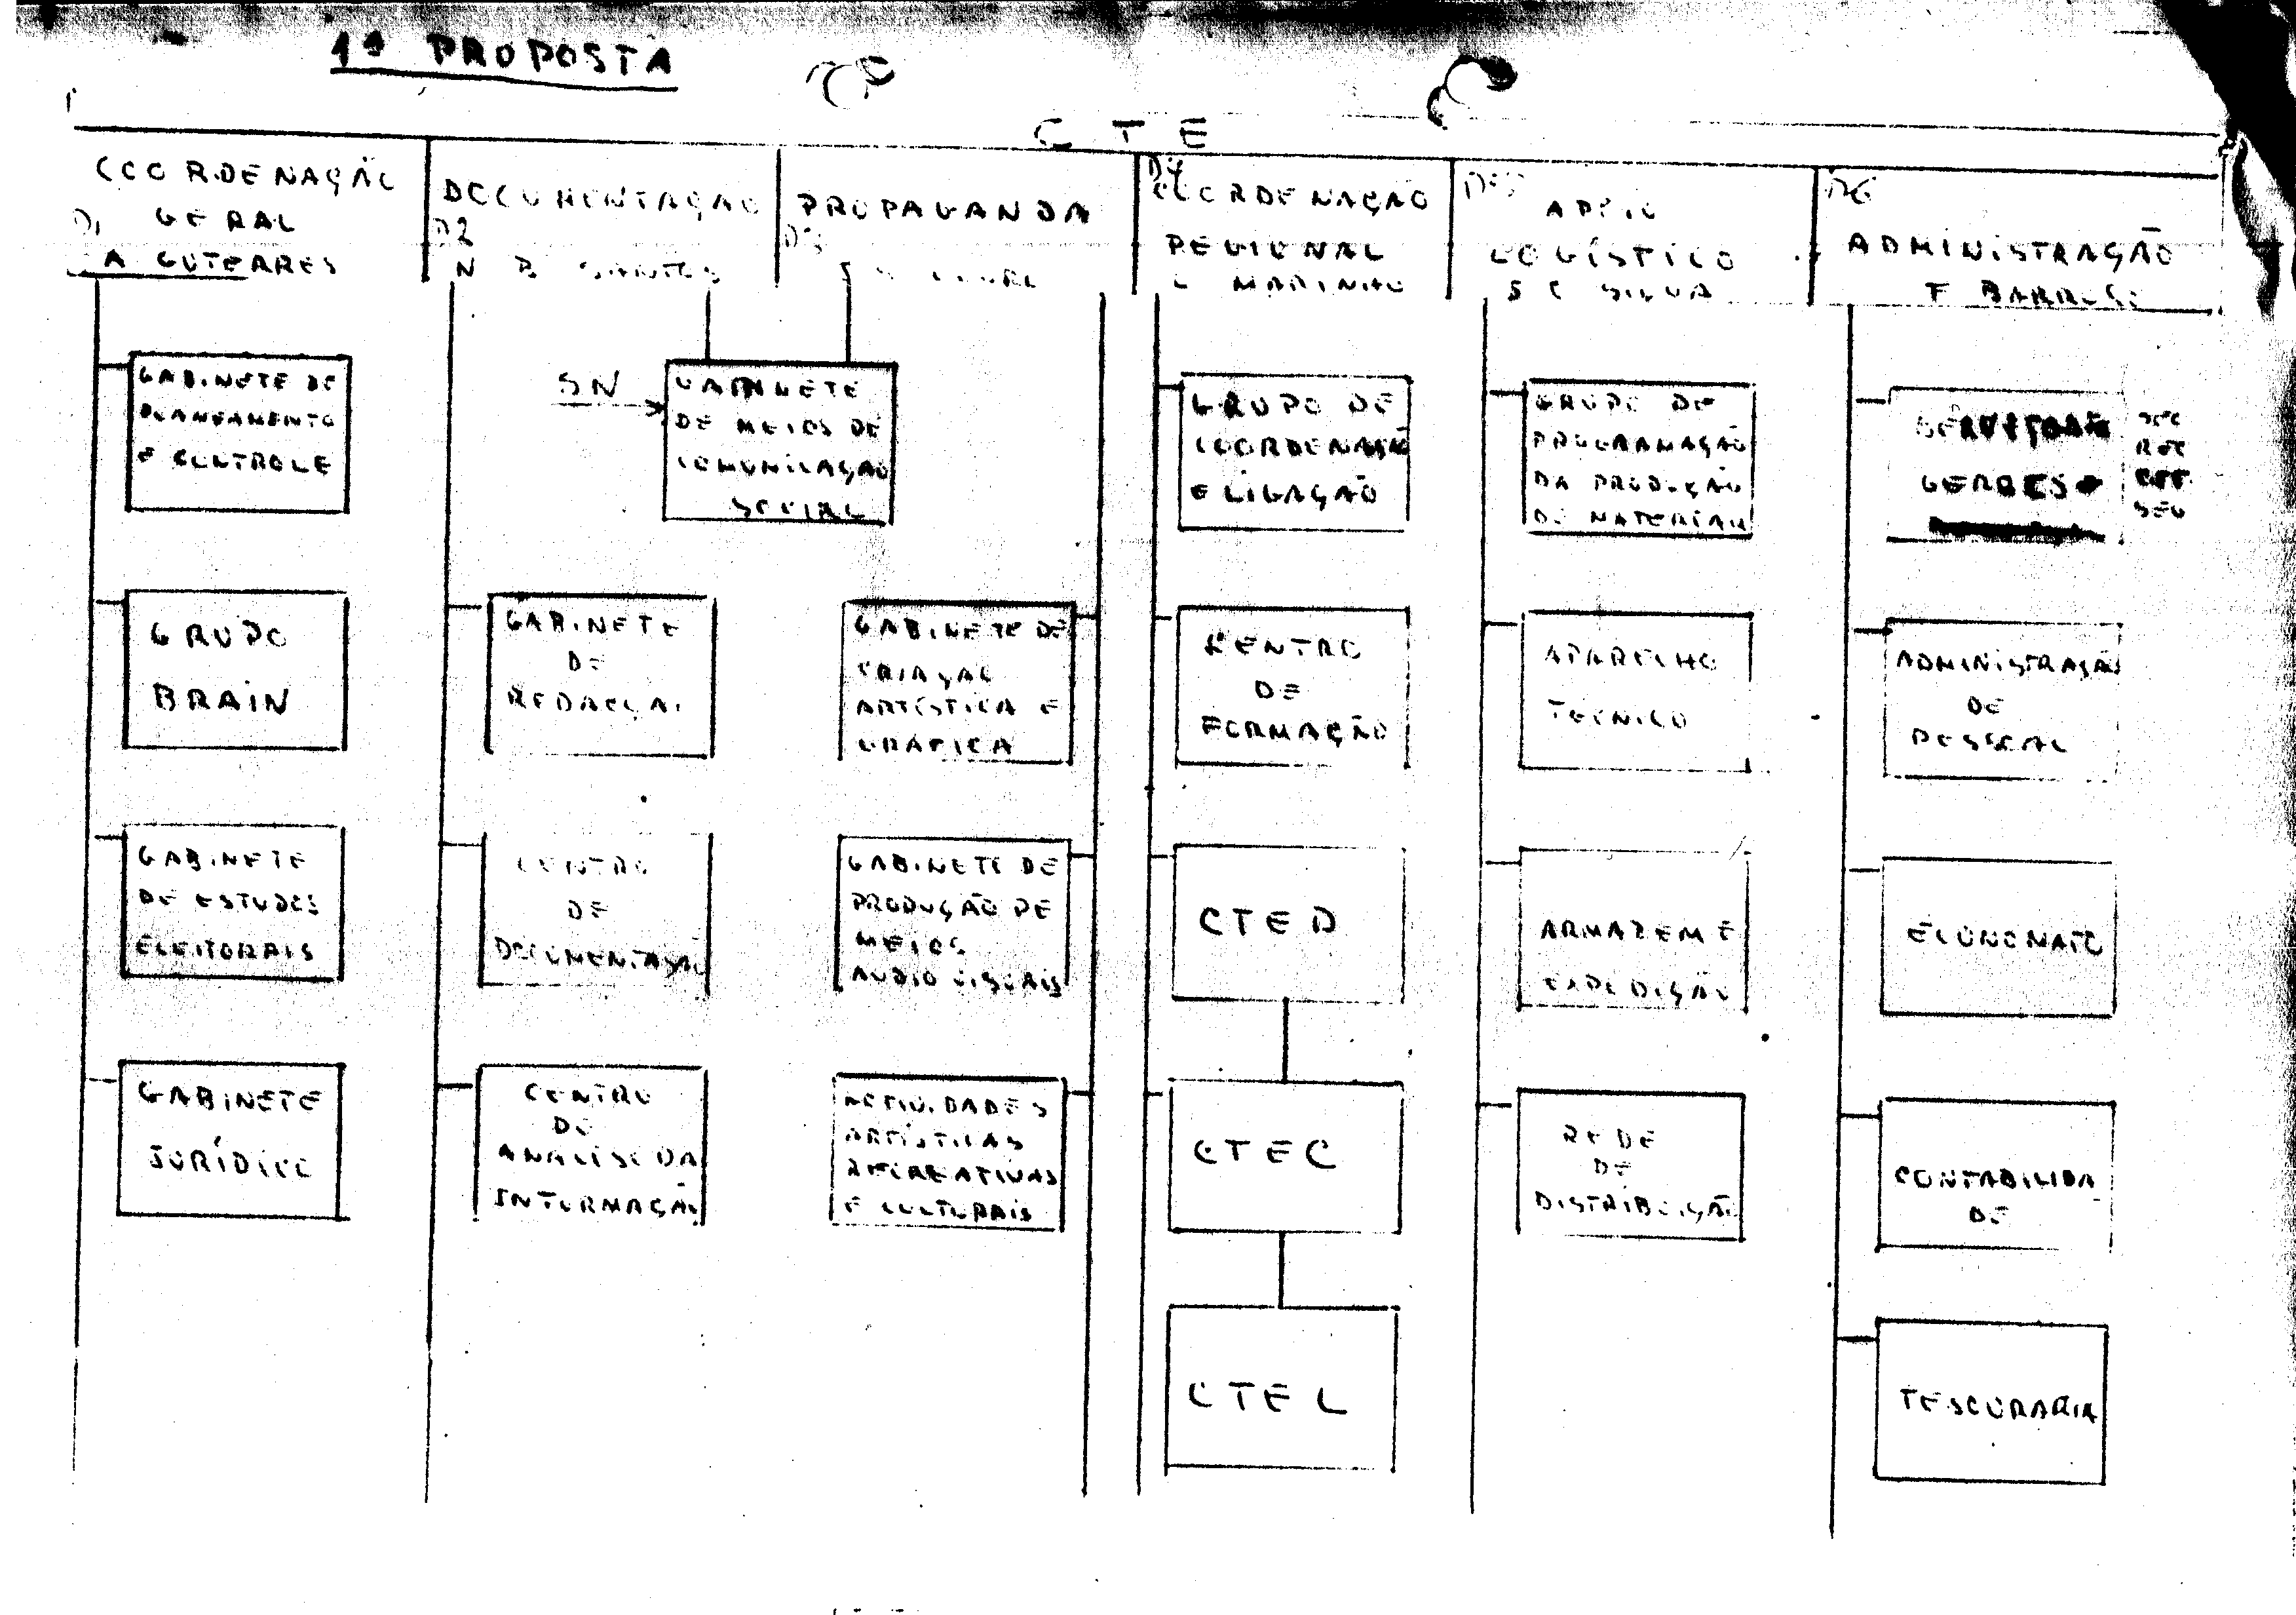 1ª PROPOSTA
C T E
COORDENAÇÃO
D1 GERAL
A GUTERRES
DOCUMENTAÇÃO
D2
N B SANTOS
PROPAGANDA
D3
D4
COORDENAÇÃO
REGIONAL
L MARINHO
D5
APOIO
LOGÍSTICO
S C SILVA
D6
ADMINISTRAÇÃO
F BARROSO
GABINETE DE
PLANEAMENTO
E CONTROLE
GRUPO
BRAIN
GABINETE
DE ESTUDOS
ELEITORAIS
GABINETE
JURÍDICO
SN
GABINETE
DE MEIOS DE
COMUNICAÇÃO
SOCIAL
GABINETE
DE
REDACÇÃO
CENTRO
DE
DOCUMENTAÇÃO
CENTRO
DE
ANÁLISE DA
INFORMAÇÃO
GABINETE DE
CRIAÇÃO
ARTÍSTICA E
GRÁFICA
GABINETE DE
PRODUÇÃO DE
MEIOS
AUDIO VISUAIS
ACTIVIDADES
ARTÍSTICAS
RECREATIVAS
E CULTURAIS
GRUPO DE
COORDENAÇÃO
E LIGAÇÃO
CENTRO
DE
FORMAÇÃO
CTED
CTEC
CTEL
GRUPO DE
PROGRAMAÇÃO
DA PRODUÇÃO
DE MATERIAL
APARELHO
TÉCNICO
ARMAZEM E
EXPEDIÇÃO
REDE
DE
DISTRIBUIÇÃO
SEC
REC
SEG
ADMINISTRAÇÃO
DE
PESSOAL
ECONOMATO
CONTABILIDA
DE
TESOURARIA